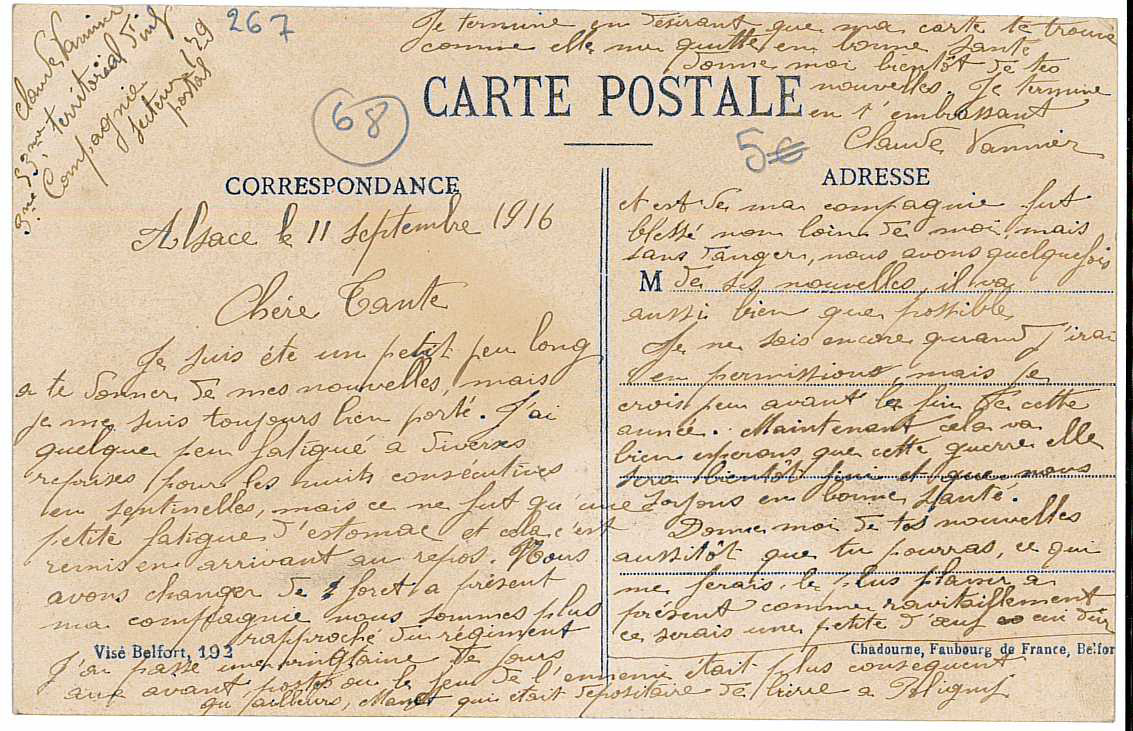 Claude Vannier
53me territorial d'inf
3me Compagnie
secteur 129
postal
267
68
5€
Je termine en désirant que ma carte te trouve
comme elle me quitte en bonne santé
donne moi bientôt de tes
nouvelles. Je termine
en t'embrassant
Claude Vannier
CARTE POSTALE
CORRESPONDANCE
Alsace le 11 septembre 1916
Chére Tante
Je suis été un petit peu long
a te donner de mes nouvelles, mais
je me suis toujours bien porté. J'ai
quelque peu fatigué a diverses
reprises pour les nuits consécutives
en septinelles, mais ce ne fut qu'une
petite fatigue d'estomac et cela c'est
remis en arrivant au repos. Nous
avons changer de foret a présent
ma compagnie nous sommes plus
rapproché du régiment
J'ai passé une vingtaine de jours
aux avant postes ou le feu de l'ennemi était plus conséquent
qu'ailleurs, qui était depositaire de bierre a Poligny
Visé Belfort, 192
ADRESSE
et est de ma compagnie fut
blessé non loin de moi mais
sans danger, nous avons quelquefois
M de ses nouvelles, il va
aussi bien que possible
Je ne sais encore quand j'irai
en permissions, mais je
crois peu avant la fin de cette
année. Maintenant cela va
bien esperons que cette guerre elle
sera bientôt fini et que nous
soyons en bonne santé.
Donne moi de tes nouvelles
aussitôt que tu pourras, ce qui
me ferais le plus plaisir a
présent comme ravitaillement
ce serais une petite d'œuf dur
Chadourne, Faubourg de France, Belfor